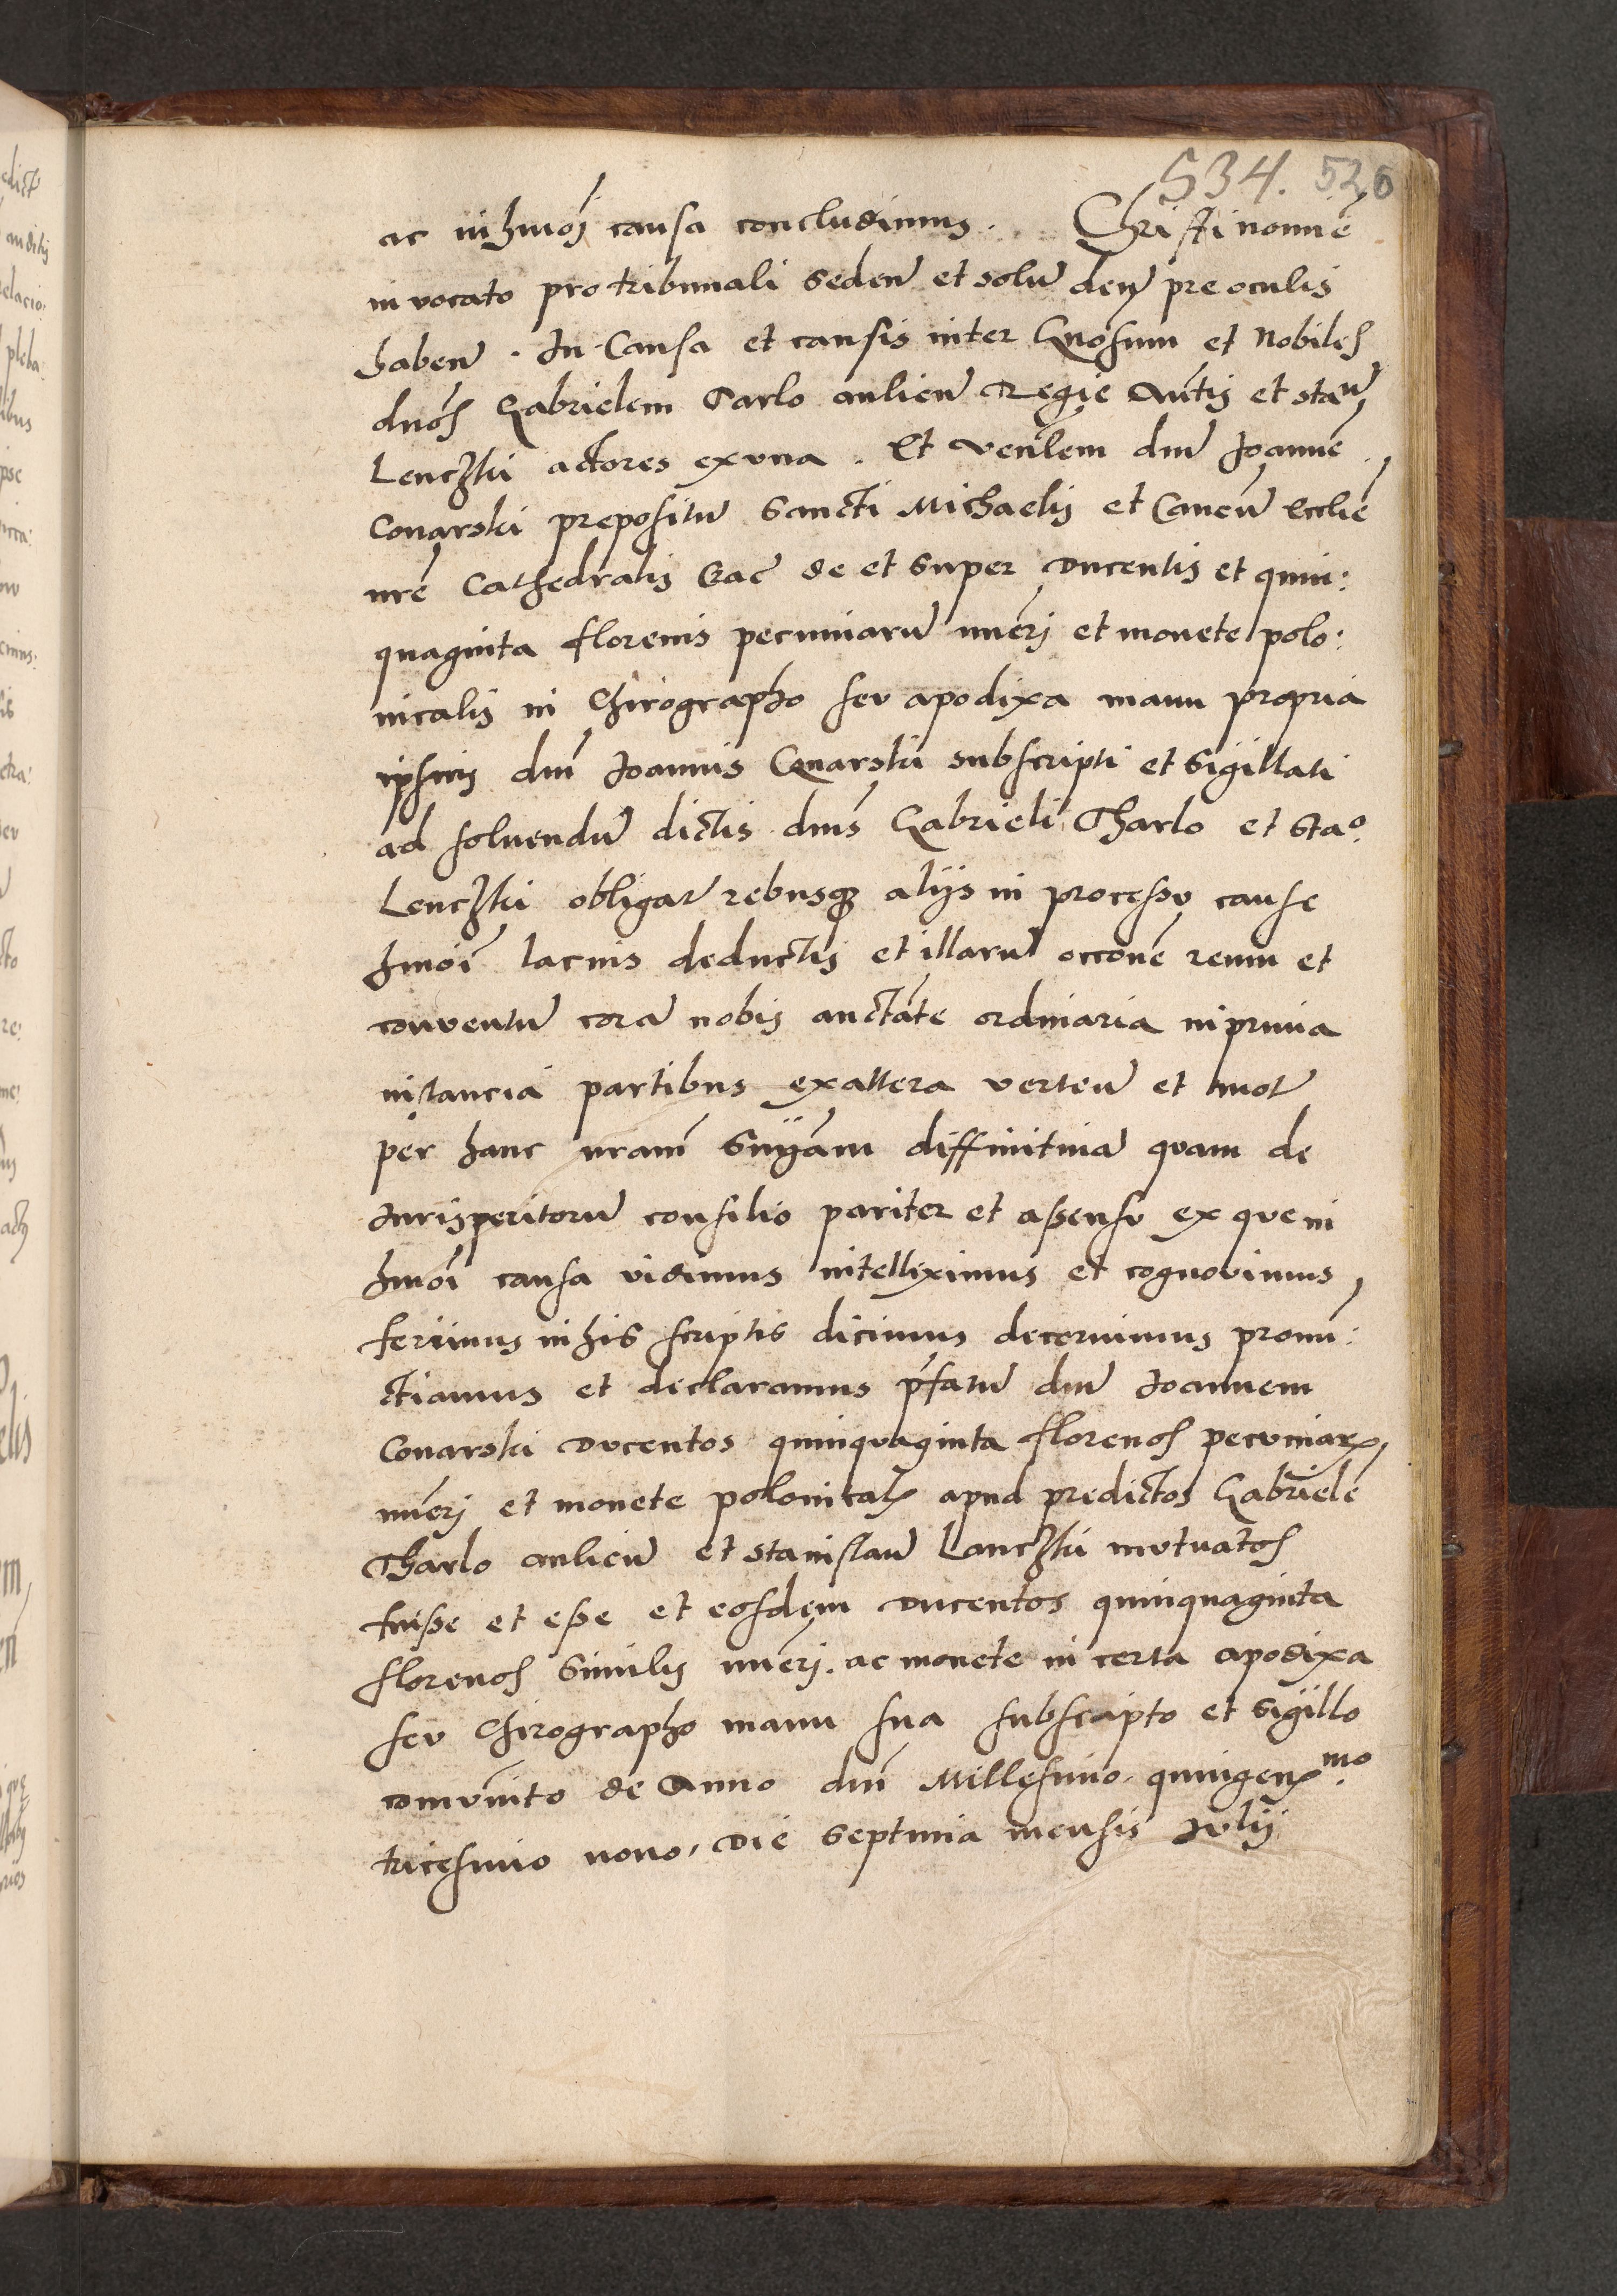 534. 526
ac in hmoi causa concludimus. Christi nomīe
invocato pro tribunali sedeñ et solū deū pre oculis
habeñ. In Causa et causis inter Gnosum et Nobiles
dnōs Gabrielem Tarlo aulicū Regie Mtis et staū
Lenczki actores ex una. Et veñlem dnū Joannē
Conarski prepositū Sancti Michaelis et Canoñ Ecclīe
nrē Cathedralis Crac̄ de et super Ducentis et quin:
quaginta florenis pecuniarū nueri et monete polo:
nicalis in Chirographo seu apodixa manu propria
ipsius dnī Joannis Conarski subscripti et sigillati
ad solvendū dictis dnīs Gabrieli Tharlo et Stao.
Lenczki obligat̄ rebusq3 alijs in processu cause
hmoi lacius deductis et illarū occone reum et
conventū corā nobis auctate ordinaria in prima
instancia partibus ex altera verteñ et mot̄
per hanc nram̄ Sniam diffinitivā quam de
Jurisperitorū consilio pariter et assensu ex que in
hmoi causa vidimus intelliximus et cognovimus,
ferimus in his scriptis dicimus decernimus pronu:
ctiamus et declaramus pfatū dnū Joannem
Conarski Ducentos quinquaginta florenos pecuniar̄
nueri et monete polonical̄ apud predictos Gabrielē
Tharlo aulicū et stanislaū Lanczki mutuatos
fuisse et esse et eosdem Ducentos quinquaginta
florenos similis nueri. ac monete in certa apodixa
seu Chirographo manu sua subscripto et sigillo
comunito de Anno dnī Millesimo quingenmo.
tricesimo nono, Die Septima mensis Julij